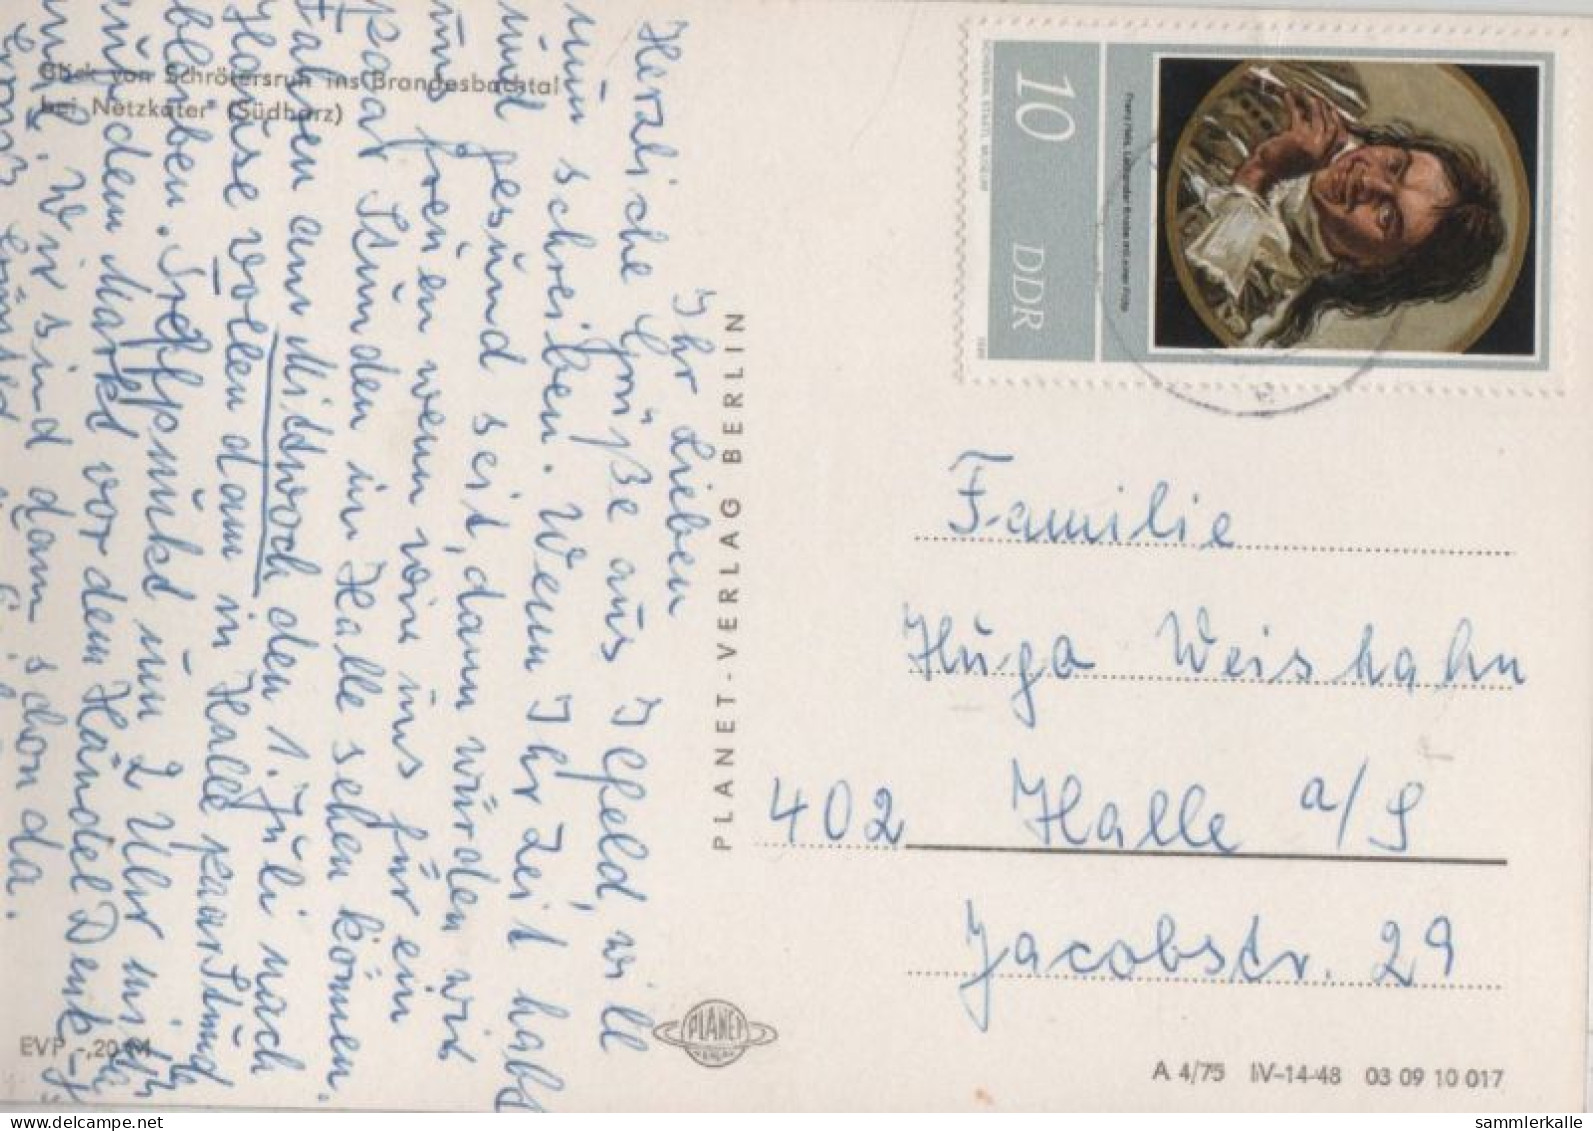 Blick von Schrötersruh ins Brandesbachtal
bei Netzkater (Südharz)
Ihr Lieben
Herzliche Grüße aus Ilfeld, will
nun schreiben. Wenn Ihr Zeit habt
und gesund seit, dann würden wir
uns freuen wenn wir uns für ein
paar Stunden in Halle sehen können.
Fahren am Mittwoch den 1. Juli nach
Hause wollen dann in Halle paar Stund
bleiben. Treffpunkt um 2 Uhr mitta
auf dem Markt vor dem Händel Denk-
mal. Wir sind dann schon da.
PLANET-VERLAG BERLIN
PLANET
VERLAG
EVP -,20 M
10
DDR
Familie
Hugo Weishahn
402 Halle a/S
Jacobstr. 29
A 4/75 IV-14-48 03 09 10 017
sammlerkalle